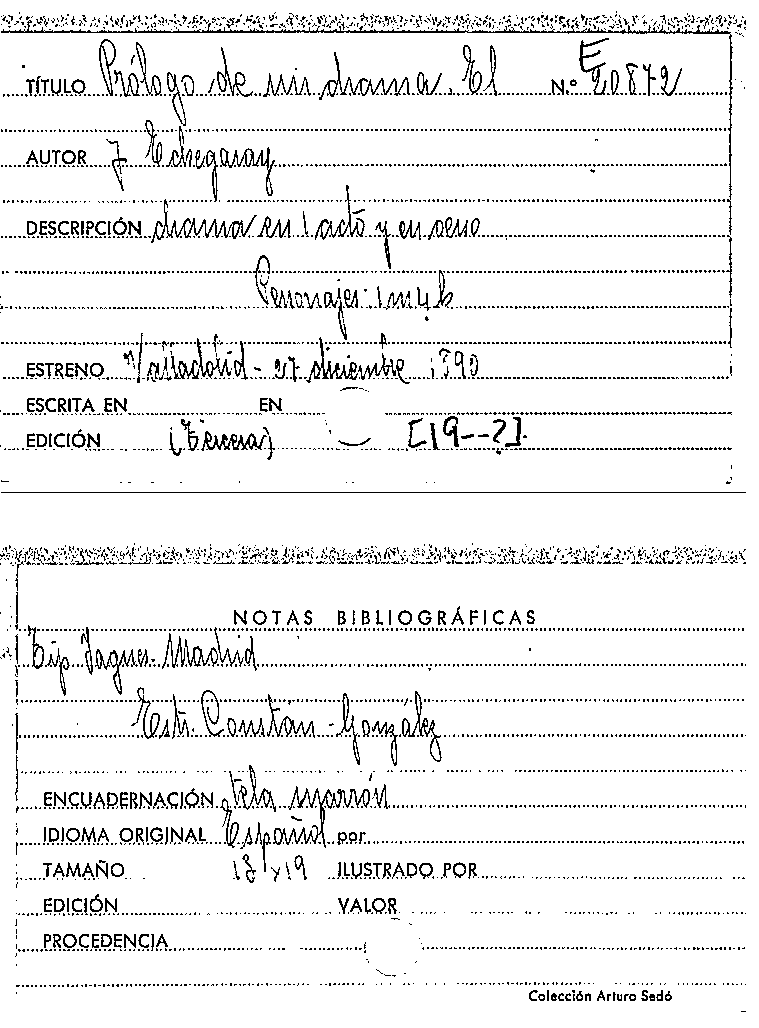 TÍTULO Prólogo de un drama. El N.º E 20872
AUTOR J Echegaray
DESCRIPCIÓN drama en 1 acto y en verso
Personajes: 1 m 4 h
ESTRENO Valladolid - 27 diciembre 1890
ESCRITA EN EN
EDICIÓN (Tercera) [19--?].
NOTAS BIBLIOGRÁFICAS
Tip. Yagües. Madrid
Estr. Constán - González
ENCUADERNACIÓN tela marrón
IDIOMA ORIGINAL Español por
TAMAÑO 13 x 19 ILUSTRADO POR
EDICIÓN VALOR
PROCEDENCIA
Colección Arturo Sedó